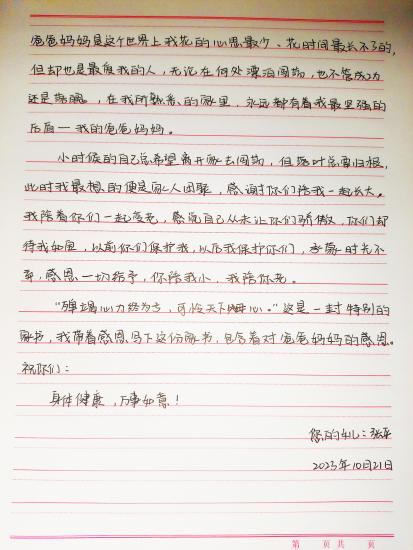 爸爸妈妈是这个世界上我花的心思最少、花时间最长不了的,
但却也是最爱我的人,无论在何处漂泊闯荡,也不管成功
还是落魄,在我所熟悉的家里,永远都有着我最坚强的
后盾—我的爸爸妈妈。
小时候的自己总希望离开家去闯荡,但落叶总要归根,
此时我最想的便是家人团聚,感谢你们陪我一起长大。
我陪着你们一起变老,感觉自己从未让你们骄傲,你们却
待我如宝,以前你们保护我,以后我保护你们,承蒙时光不
弃,感恩一切给予,你陪我小,我陪你老。
“殚竭心力终为子,可怜天下父母心。”这是一封特别的
家书,我带着感恩写下这份家书,包含着对爸爸妈妈的感恩。
祝你们:
身体健康,万事如意!
您的女儿:张平
2023年10月21日
第 页 共 页